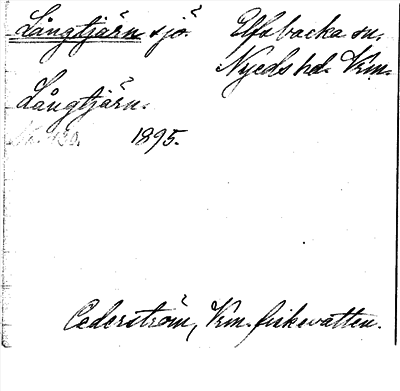 Långtjärn sjö. Elfsbacka sn.
Nyeds hd. Vrm.
Långtjärn.
No. 430. 1895.
Cederström, Vrm. fiskevatten.